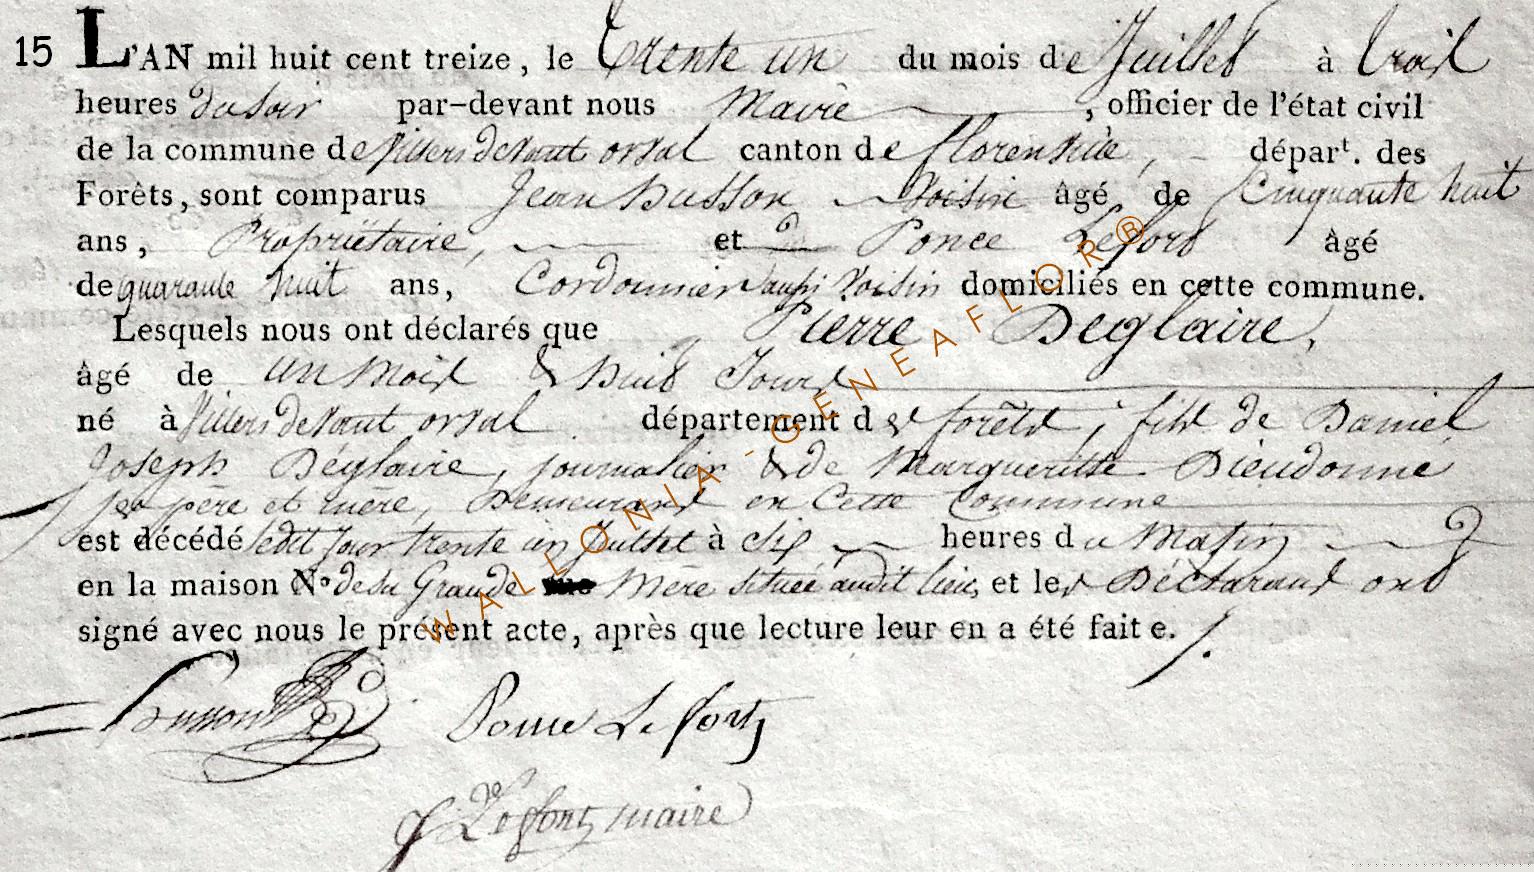 15 L'AN mil huit cent treize, le trente un du mois de Juillet à trois
heures du soir par-devant nous Maire, officier de l'état civil
de la commune de Villers devant orval canton de florenville, départ. des
Forêts, sont comparus Jean Husson voisin âgé de Cinquante huit
ans, Propriétaire, et Ponce Lefort âgé
de quarante huit ans, Cordonnier aussi voisin domiciliés en cette commune.
Lesquels nous ont déclarés que Pierre Déglaire,
âgé de un Mois & huit Jours
né à Villers devant orval département des forêts, fils de Daniel
Joseph Déglaire, journalier & de Margueritte Dieudonne
ses père et mere, Demeurant en Cette Commune
est décédé ledit Jour trente un Juillet à six heures du Matin
en la maison N° de sa Grande Mère située audit lieu, et les Déclarans ont
signé avec nous le présent acte, après que lecture leur en a été faite.
Husson Ponce Lefort
Lefort maire
WALLONIA-GENEAFLOR®